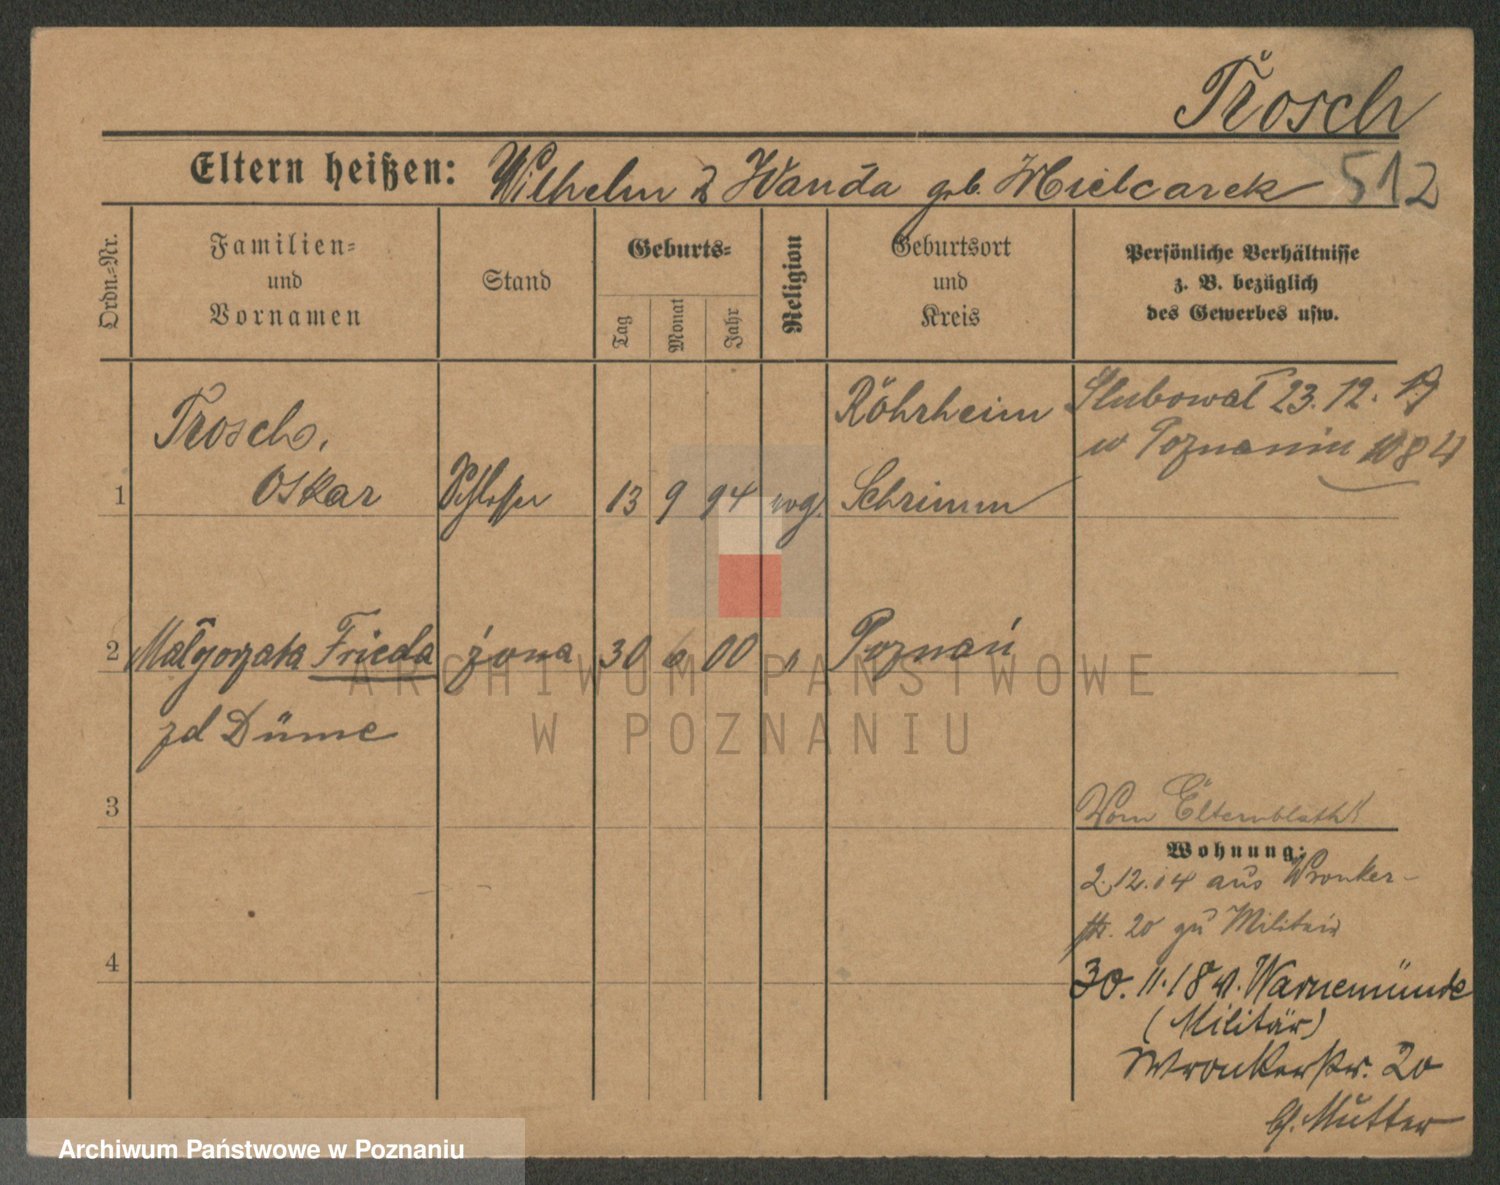 Trosch
Eltern heißen: Wilhelm & Wanda geb. Mielcarek 512
Ordn.=Nr.
Familien=
und
Vornamen
Stand
Geburts=
Tag
Monat
Jahr
Religion
Geburtsort
und
Kreis
Persönliche Verhältnisse
z. B. bezüglich
des Gewerbes usw.
Trosch, Röhrheim Ślubował 23.12.19
w Poznaniu 1084
1 Oskar Schlosser 13 9 94 evg. Schrimm
2 Małgorzata Frieda żona 30 6 00 " Poznań
zd Düme
3
Vom Elternblatt
Wohnung:
2.12.14 aus Wronker-
str. 20 zu Militair
4
30.11.18 v. Warnemünde
(Militär)
Wronkerstr. 20
b. Mutter
ARCHIWUM PAŃSTWOWE
W POZNANIU
Archiwum Państwowe w Poznaniu